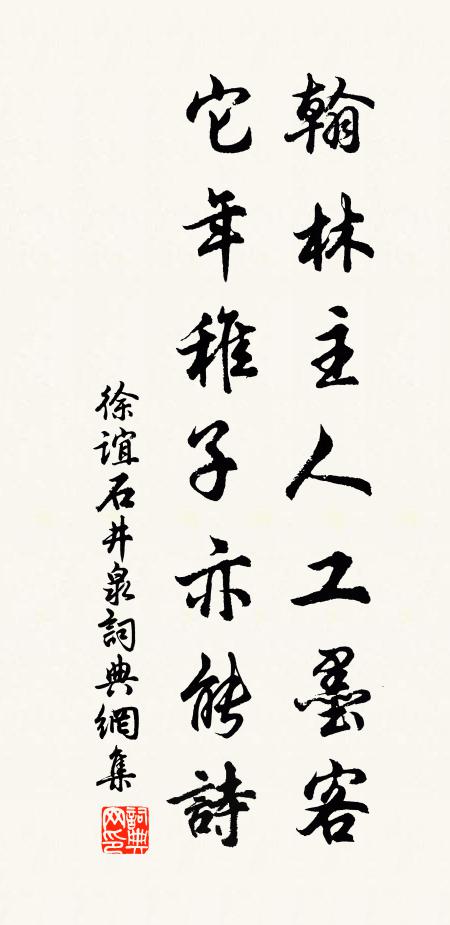 翰林主人工墨客
它年稚子亦能詩
徐誼石井泉詞典網集
詞典網印